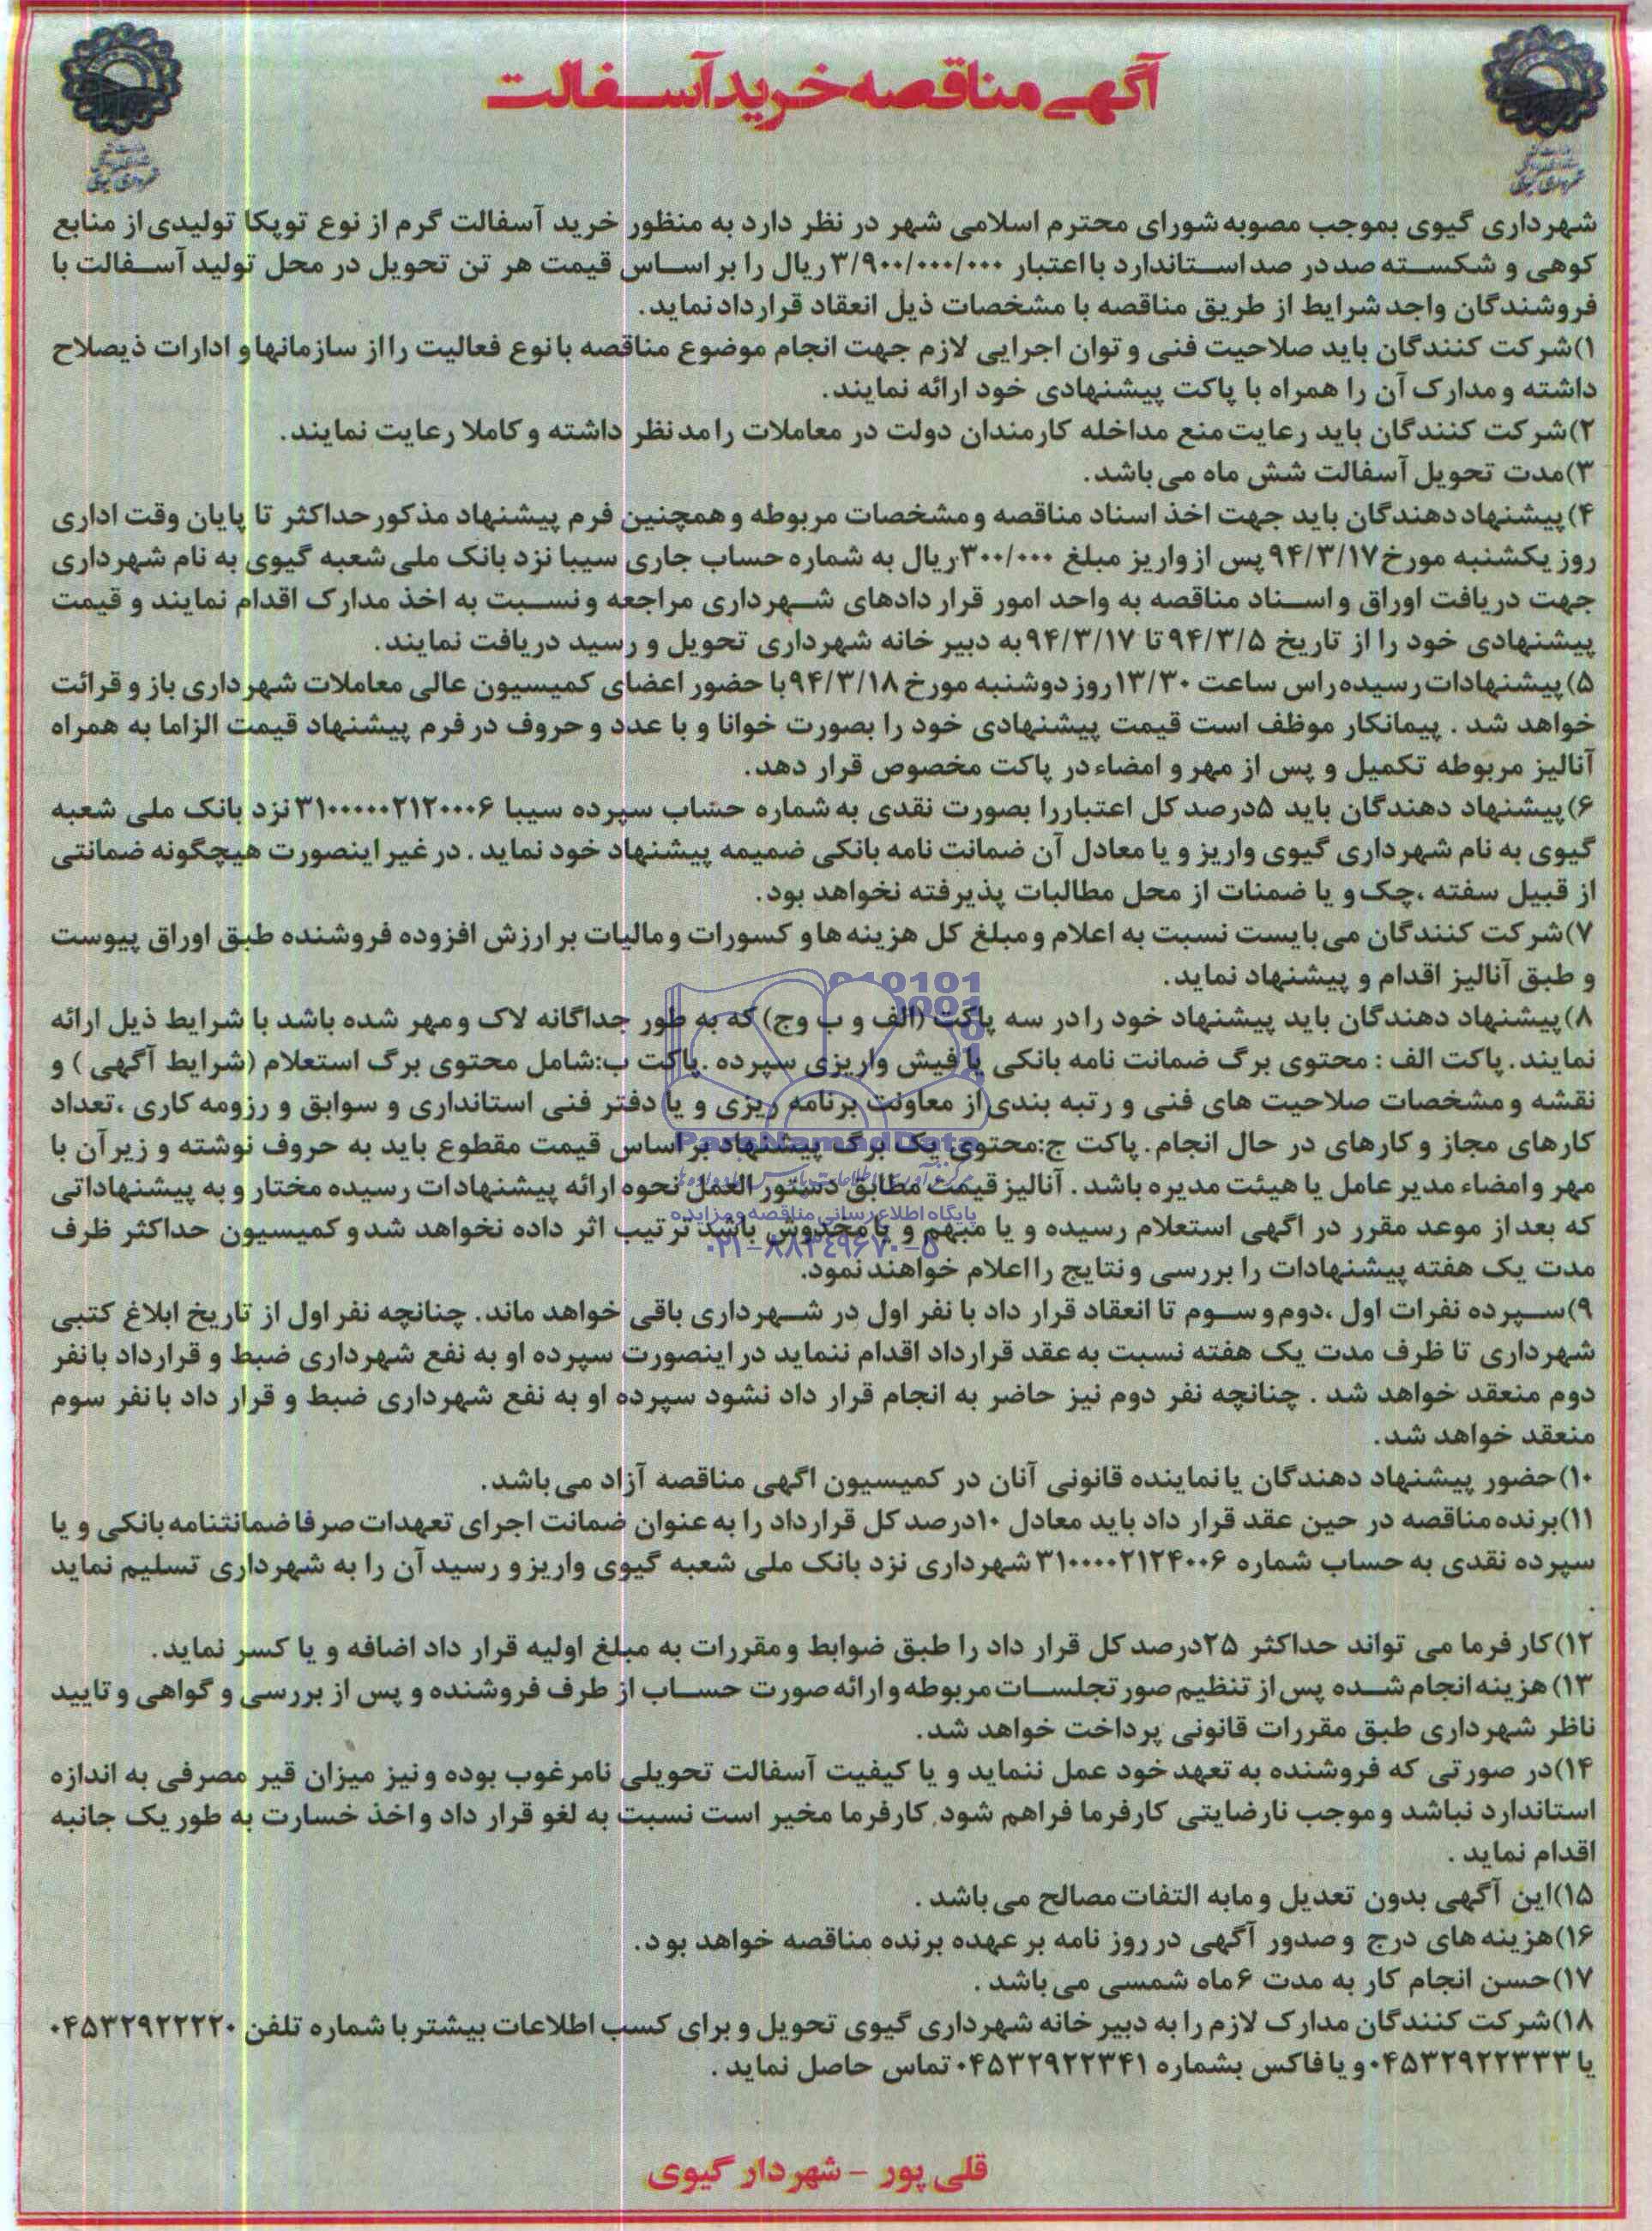 آگهی مناقصه خرید آسفالت
شهرداری گیوی بموجب مصوبه شورای محترم اسلامی شهر در نظر دارد به منظور خرید آسفالت گرم از نوع توپکا تولیدی از منابع
کوهی و شکسته صد در صد استاندارد با اعتبار ۳/۹۰۰/۰۰۰/۰۰۰ ریال را بر اساس قیمت هر تن تحویل در محل تولید آسفالت با
فروشندگان واجد شرایط از طریق مناقصه با مشخصات ذیل انعقاد قرار داد نماید.
۱)شرکت کنندگان باید صلاحیت فنی و توان اجرایی لازم جهت انجام موضوع مناقصه با نوع فعالیت را از سازمانها و ادارات ذیصلاح
داشته و مدارک آن را همراه با پاکت پیشنهادی خود ارائه نمایند.
۲)شرکت کنندگان باید رعایت منع مداخله کارمندان دولت در معاملات را مد نظر داشته و کاملا رعایت نمایند.
۳)مدت تحویل آسفالت شش ماه می باشد.
۴)پیشنهاد دهندگان باید جهت اخذ اسناد مناقصه و مشخصات مربوطه و همچنین فرم پیشنهاد مذکور حداکثر تا پایان وقت اداری
روز یکشنبه مورخ ۹۴/۳/۱۷ پس از واریز مبلغ ۳۰۰/۰۰۰ریال به شماره حساب جاری سیبا نزد بانک ملی شعبه گیوی به نام شهرداری
جهت دریافت اوراق و اسناد مناقصه به واحد امور قرار دادهای شهرداری مراجعه و نسبت به اخذ مدارک اقدام نمایند و قیمت
پیشنهادی خود را از تاریخ ۹۴/۳/۵ تا ۹۴/۳/۱۷به دبیر خانه شهرداری تحویل و رسید دریافت نمایند.
۵)پیشنهادات رسیده راس ساعت ۱۳/۳۰روز دوشنبه مورخ ۹۴/۳/۱۸با حضور اعضای کمیسیون عالی معاملات شهرداری باز و قرائت
خواهد شد . پیمانکار موظف است قیمت پیشنهادی خود را بصورت خوانا و با عدد و حروف در فرم پیشنهاد قیمت الزاما به همراه
آنالیز مربوطه تکمیل و پس از مهر و امضاء در پاکت مخصوص قرار دهد.
۶)پیشنهاد دهندگان باید ۵درصد کل اعتبار را بصورت نقدی به شماره حساب سپرده سیبا ۳۱۰۰۰۰۰۰۲۱۲۰۰۰۶ نزد بانک ملی شعبه
گیوی به نام شهرداری گیوی واریز و یا معادل آن ضمانت نامه بانکی ضمیمه پیشنهاد خود نماید . در غیر اینصورت هیچگونه ضمانتی
از قبیل سفته ،چک و یا ضمنات از محل مطالبات پذیرفته نخواهد بود.
۷)شرکت کنندگان می بایست نسبت به اعلام و مبلغ کل هزینه ها و کسورات و مالیات بر ارزش افزوده فروشنده طبق اوراق پیوست
و طبق آنالیز اقدام و پیشنهاد نماید.
۸)پیشنهاد دهندگان باید پیشنهاد خود را در سه پاکت (الف و ب وج) که به طور جداگانه لاک و مهر شده باشد با شرایط ذیل ارائه
نمایند. پاکت الف : محتوی برگ ضمانت نامه بانکی یا فیش واریزی سپرده .پاکت ب:شامل محتوی برگ استعلام (شرایط آگهی ) و
نقشه و مشخصات صلاحیت های فنی و رتبه بندی از معاونت برنامه ریزی و یا دفتر فنی استانداری و سوابق و رزومه کاری ،تعداد
کارهای مجاز و کارهای در حال انجام. پاکت ج:محتوی یک برگ پیشنهاد بر اساس قیمت مقطوع باید به حروف نوشته و زیر آن با
مهر و امضاء مدیر عامل یا هیئت مدیره باشد . آنالیز قیمت مطابق دستور العمل نحوه ارائه پیشنهادات رسیده مختار و به پیشنهاداتی
که بعد از موعد مقرر در اگهی استعلام رسیده و یا مبهم و یا مخدوش باشد ترتیب اثر داده نخواهد شد و کمیسیون حداکثر ظرف
مدت یک هفته پیشنهادات را بررسی و نتایج را اعلام خواهند نمود.
پایگاه اطلاع رسانی مناقصه و مزایده
۰۲۱-۸۸۳۴۹۶۷۰-۵
۹)سپرده نفرات اول ،دوم و سوم تا انعقاد قرار داد با نفر اول در شهرداری باقی خواهد ماند. چنانچه نفر اول از تاریخ ابلاغ کتبی
شهرداری تا ظرف مدت یک هفته نسبت به عقد قرارداد اقدام ننماید در اینصورت سپرده او به نفع شهرداری ضبط و قرارداد با نفر
دوم منعقد خواهد شد . چنانچه نفر دوم نیز حاضر به انجام قرار داد نشود سپرده او به نفع شهرداری ضبط و قرار داد با نفر سوم
منعقد خواهد شد.
۱۰)حضور پیشنهاد دهندگان یا نماینده قانونی آنان در کمیسیون اگهی مناقصه آزاد می باشد.
۱۱)برنده مناقصه در حین عقد قرار داد باید معادل ۱۰درصد کل قرارداد را به عنوان ضمانت اجرای تعهدات صرفا ضمانتنامه بانکی و یا
سپرده نقدی به حساب شماره ۳۱۰۰۰۰۲۱۲۴۰۰۶ شهرداری نزد بانک ملی شعبه گیوی واریز و رسید آن را به شهرداری تسلیم نماید
.
۱۲)کار فرما می تواند حداکثر ۲۵درصد کل قرار داد را طبق ضوابط و مقررات به مبلغ اولیه قرار داد اضافه و یا کسر نماید.
۱۳)هزینه انجام شده پس از تنظیم صور تجلسات مربوطه و ارائه صورت حساب از طرف فروشنده و پس از بررسی و گواهی و تایید
ناظر شهرداری طبق مقررات قانونی پرداخت خواهد شد.
۱۴)در صورتی که فروشنده به تعهد خود عمل ننماید و یا کیفیت آسفالت تحویلی نامرغوب بوده و نیز میزان قیر مصرفی به اندازه
استاندارد نباشد و موجب نارضایتی کارفرما فراهم شود، کارفرما مخیر است نسبت به لغو قرار داد و اخذ خسارت به طور یک جانبه
اقدام نماید .
۱۵)این آگهی بدون تعدیل و مابه التفات مصالح می باشد .
۱۶)هزینه های درج و صدور آگهی در روز نامه بر عهده برنده مناقصه خواهد بود.
۱۷)حسن انجام کار به مدت ۶ماه شمسی می باشد .
۱۸)شرکت کنندگان مدارک لازم را به دبیر خانه شهرداری گیوی تحویل و برای کسب اطلاعات بیشتر با شماره تلفن ۰۴۵۳۲۹۲۲۲۲۰
یا ۰۴۵۳۲۹۲۲۳۳۳ و یا فاکس بشماره ۰۴۵۳۲۹۲۲۳۴۱ تماس حاصل نماید .
قلی پور - شهردار گیوی